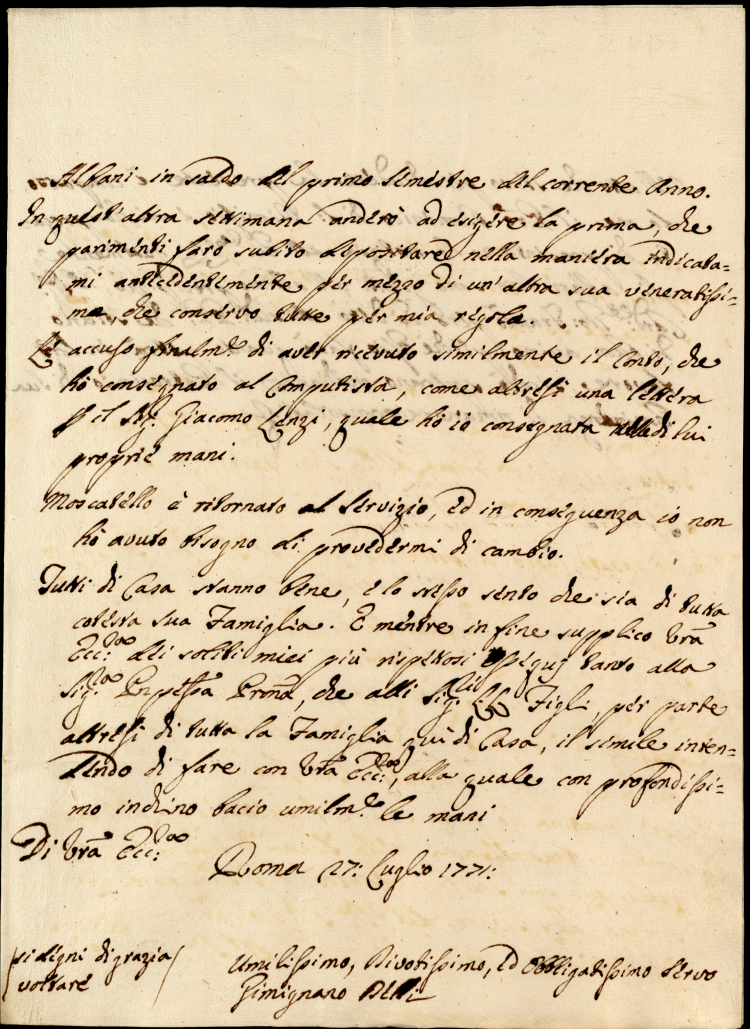 Albani in saldo del primo semestre del corrente Anno.
In quest'altra settimana anderò ad esigere la prima, che
parimenti farò subito depositare nella maniera indicata=
mi antecedentemente per mezzo di un'altra sua veneratissi=
ma, che conservo tutte per mia regola.
Le accuso finalm.e di aver ricevuto similmente il Conto, che
hò consegnato al Computista, come altresì una lettera
p il Sig: Giacomo Lenzi, quale hò io consegnata di lui
proprie mani.
Moscatello è ritornato al servizio, ed in conseguenza io non
hò avuto bisogno di provedermi di cambio.
Tutti di Casa stanno bene, e lo stesso sento che sia di tutta
cotesta sua Famiglia. E mentre in fine supplico Vrã
Ecc:za dei soliti miei più rispettosi ossequj tanto alla
Sig:ra Pnpessa Prona, che alli Sig:li Figli, per parte
altresì di tutta la Famiglia quì di Casa, il simile inten=
dendo di fare con Vrã Ecc:za, alla quale con profondissi=
mo inchino bacio umilm.e le mani
Di Vrã Ecc:za
Roma 27: Luglio 1771:
si degni di grazia
voltare
Umilissimo, Divotissimo, ed Obbligatissimo Servo
Gimignano